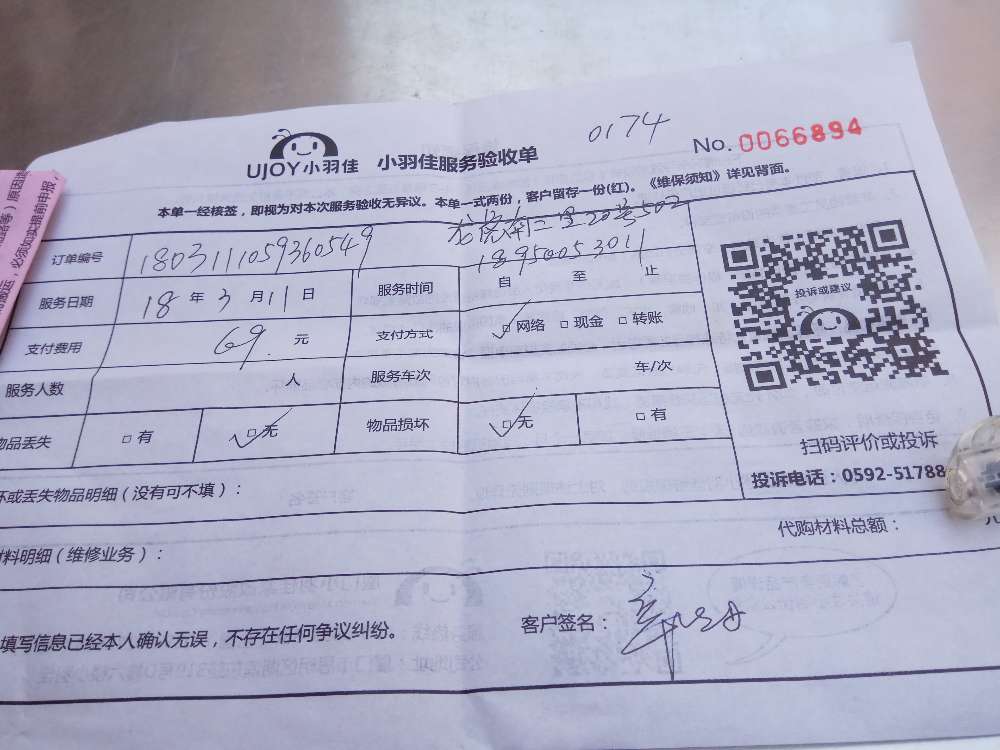 0174
No. 0066894
UJOY小羽佳 小羽佳服务验收单
本单一经核签，即视为对本次服务验收无异议。本单一式两份，客户留存一份(红)。《维保须知》详见背面。
20号502
订单编号 180311059360549 18950053011
服务日期 18 年 3 月 11 日 服务时间 自 至 止
支付费用 69. 元 支付方式 网络 现金 转账
服务人数 人 服务车次 车/次
物品丢失 有 无 物品损坏 无 有
投诉或建议
扫码评价或投诉
投诉电话：0592-51788
坏或丢失物品明细（没有可不填）：
代购材料总额： 元
材料明细（维修业务）：
填写信息已经本人确认无误，不存在任何争议纠纷。
客户签名：